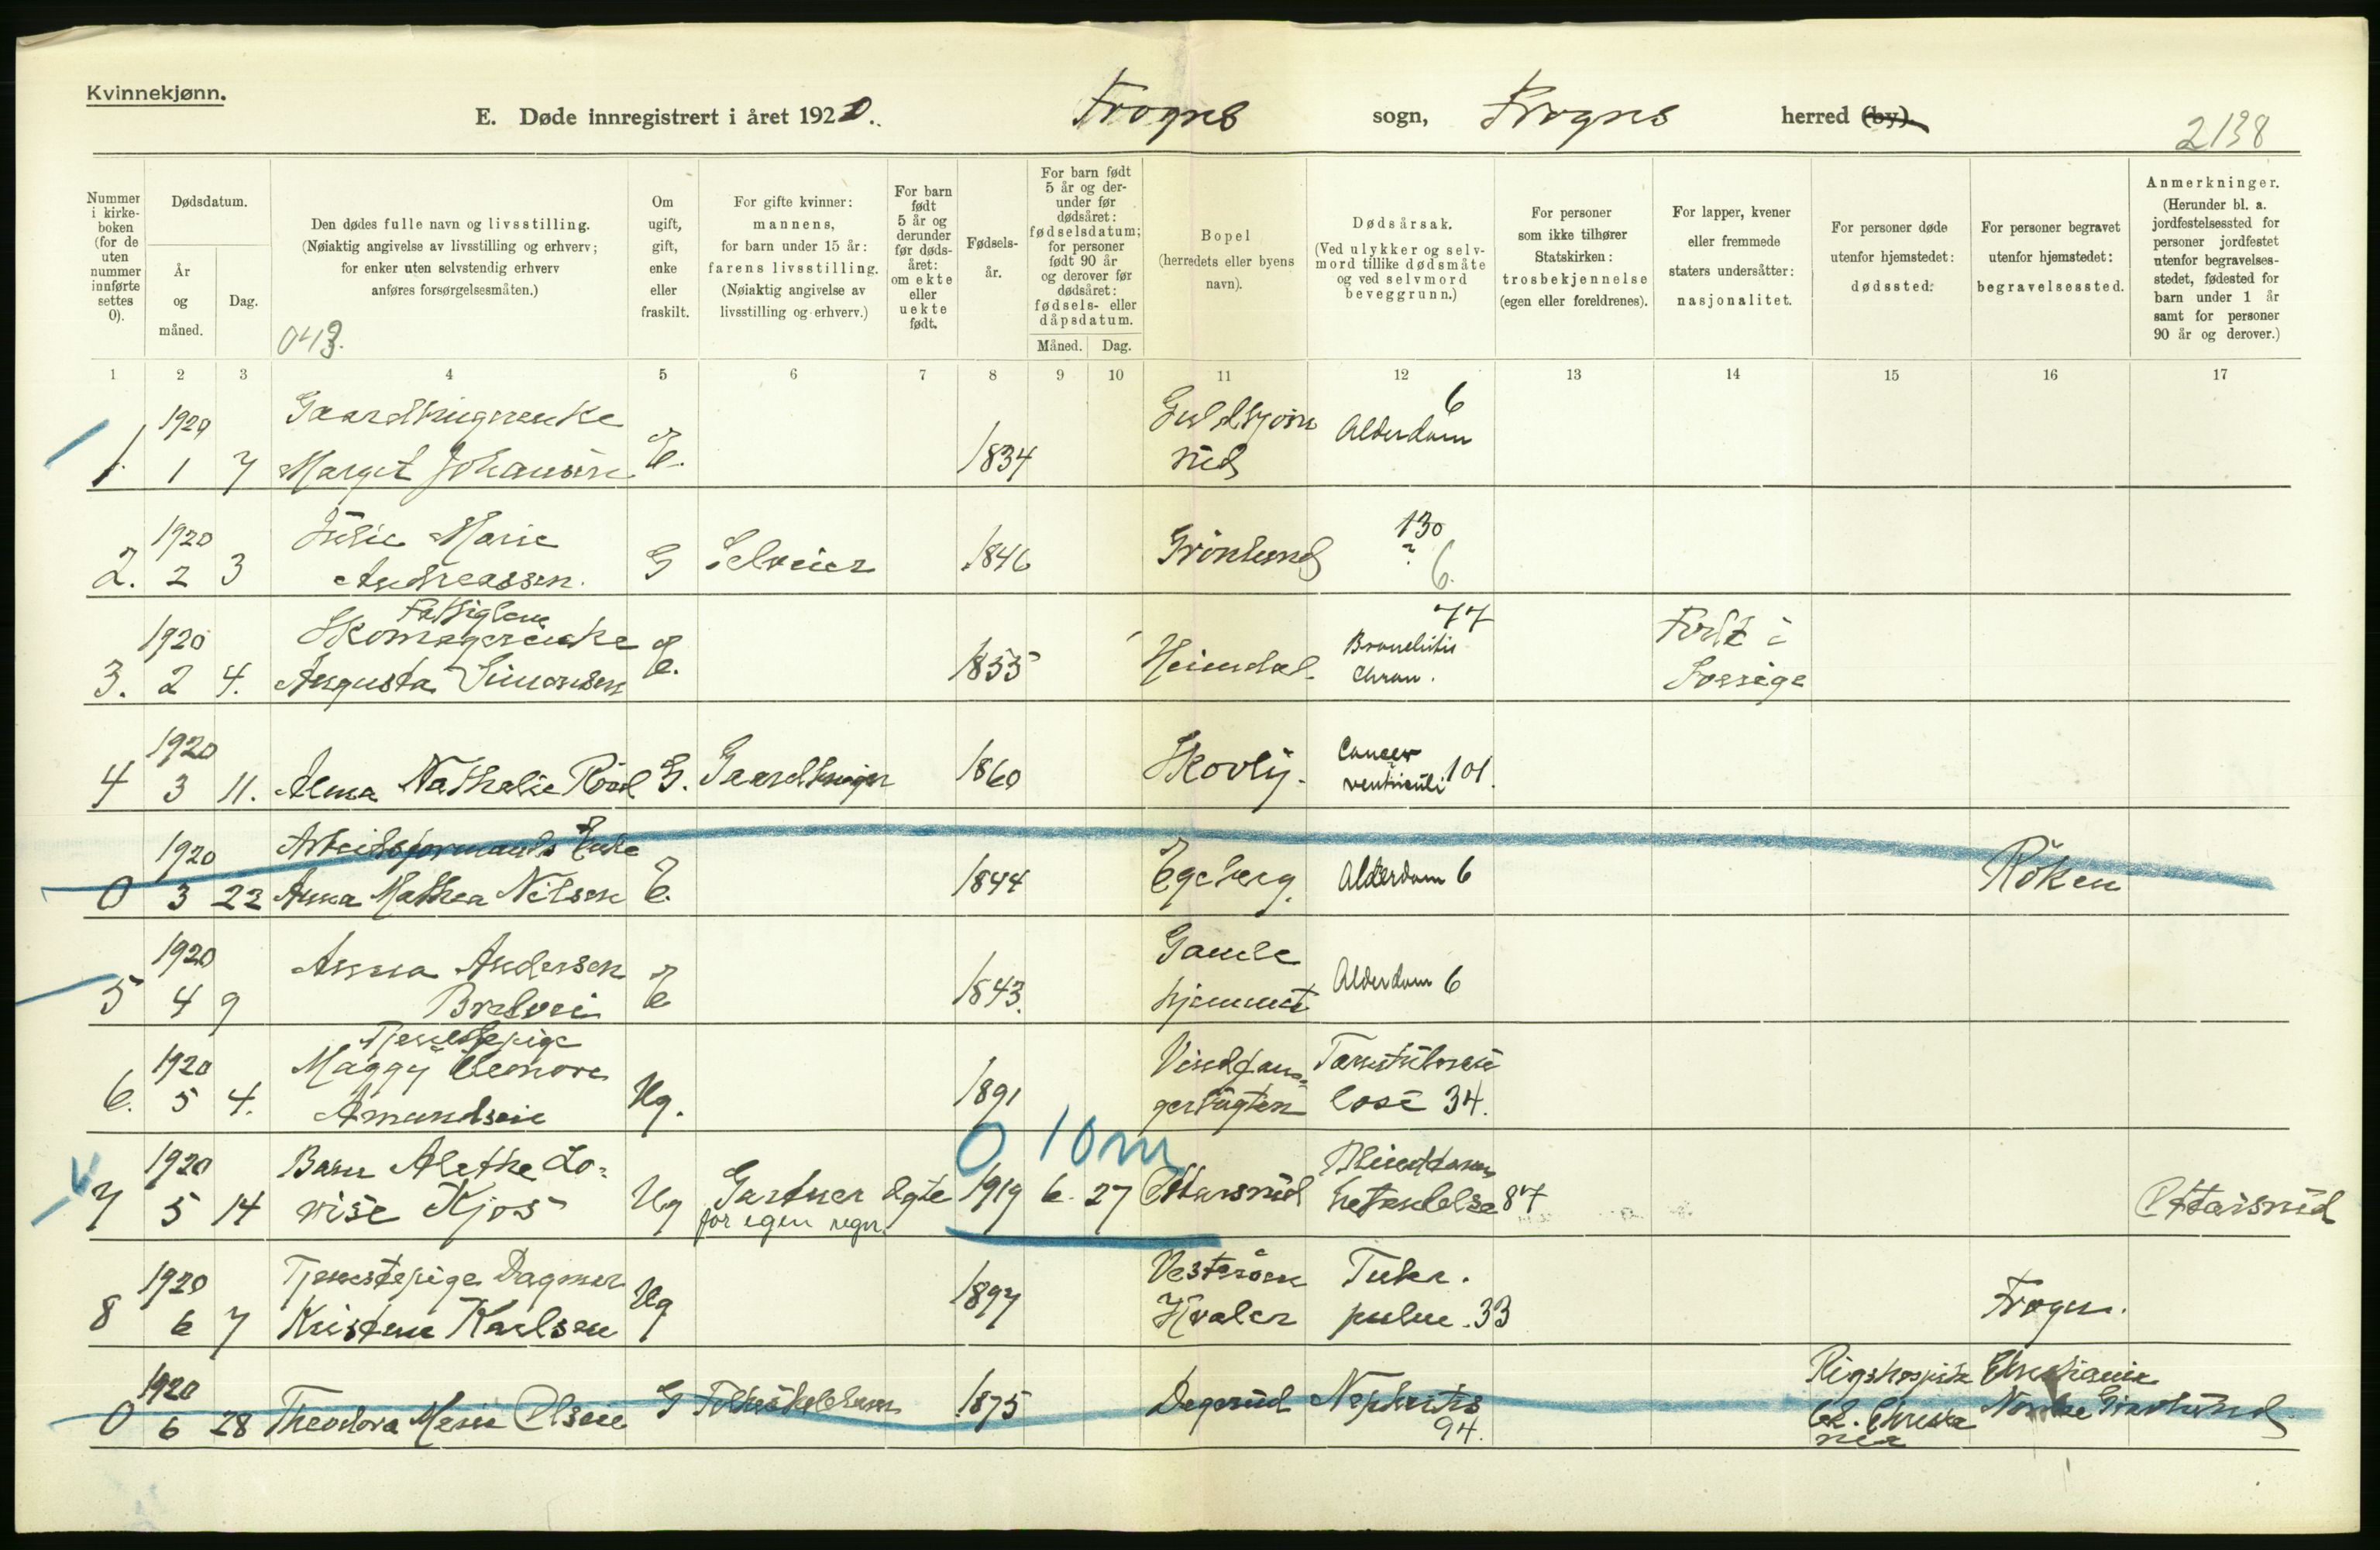 Kvinnekjønn.
E. Døde innregistrert i året 1920. Frogns sogn, Frogns herred (by).
2138
Nummer i kirkeboken (for de uten nummer innførte settes 0).
Dødsdatum.
År og måned.
Dag.
Den dødes fulle navn og livsstilling.
(Nøiaktig angivelse av livsstilling og erhverv;
for enker uten selvstendig erhverv
anføres forsørgelsesmåten.)
043.
Om ugift, gift, enke eller fraskilt.
For gifte kvinner:
mannens,
for barn under 15 år:
farens livsstilling.
(Nøiaktig angivelse av
livsstilling og erhverv.)
For barn født 5 år og derunder før dødsåret: om ekte eller uekte født.
Fødselsår.
For barn født 5 år og derunder før dødsåret: fødselsdatum; for personer født 90 år og derover før dødsåret: fødsels- eller dåpsdatum.
Måned. Dag.
Bopel
(herredets eller byens
navn).
Dødsårsak.
(Ved ulykker og selvmord tillike dødsmåte og ved selvmord beveggrunn.)
For personer
som ikke tilhører
Statskirken:
trosbekjennelse
(egen eller foreldrenes).
For lapper, kvener
eller fremmede
staters undersåtter:
nasjonalitet.
For personer døde
utenfor hjemstedet:
dødssted:
For personer begravet
utenfor hjemstedet:
begravelsessted.
Anmerkninger.
(Herunder bl. a.
jordfestelsessted for
personer jordfestet
utenfor begravelses-
stedet, fødested for
barn under 1 år
samt for personer
90 år og derover.)
1 2 3 4 5 6 7 8 9 10 11 12 13 14 15 16 17
1920 Gaardbrugerenke 6
1. 1 7 Marget Johansen E. 1834 Alderdom
1920 Julie Marie 130
2. 2 3 Andreassen. G Selveier 1846 Grönlund ? 6.
Fattiglem 77
1920 Skomagerenke Bronchitis Født i
3. 2 4. Augusta Simonsen E. 1855 Heimdal. chron.
1920 Cancer
4 3 11. Anna Nathalie G. Gaardbruger 1860 Skovly. ventriculi 101.
1920 Arbeidsformands Enke
0 3 22 Anna Mathea Nilsen E. 1844 Egeberg. Alderdom 6 Röken
1920 Anna Andersen Gamle
5 4 9 E 1843. hjemmet Alderdom 6
Tjenestepige
1920 Maggy Eleonora
6. 5 4. Amundsen Ug. 1891 34.
0 10m
1920 Barn Alethe Lo-
7 5 14 vise Kjos Ug Gartner Egte 1919 6. 27 Ottarsrud betendelse 87 Ottarsrud
for egen regn.
1920 Tjenestepige Dagmar Tube.
8 6 7 Kristine Karlsen Ug 1897 Hvaler pulm. 33 Frogn.
1920 Rigshospita
0 6 28 Theodora Marie Olsen G 1875 Degerud Nephritis Nordre Gravlund
94.